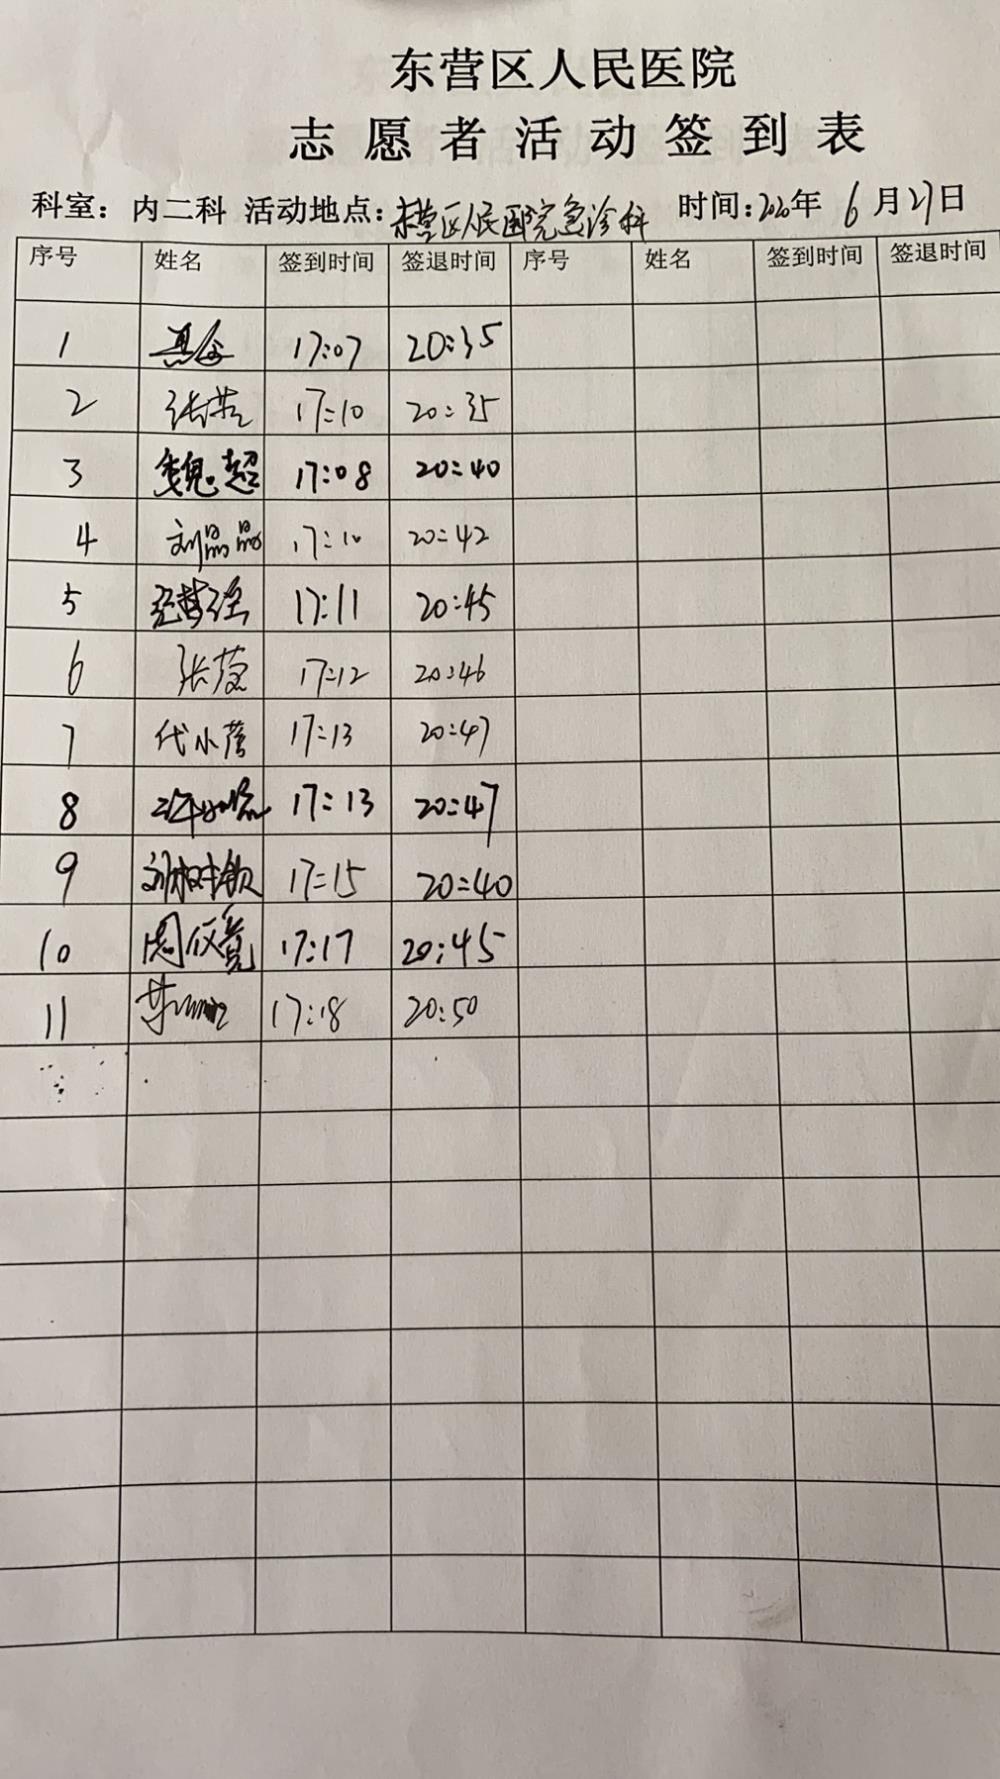 东营区人民医院
志愿者活动签到表
科室：内二科 活动地点：东营区人民医院急诊科 时间：2020年 6月27日
序号 姓名 签到时间 签退时间 序号 姓名 签到时间 签退时间
1 17:07 20:35
2 17:10 20:35
3 魏超 17:08 20:40
4 刘晶晶 17:10 20:42
5 17:11 20:45
6 17:12 20:46
7 代小蓉 17:13 20:47
8 17:13 20:47
9 17:15 20:40
10 17:17 20:45
11 17:18 20:50